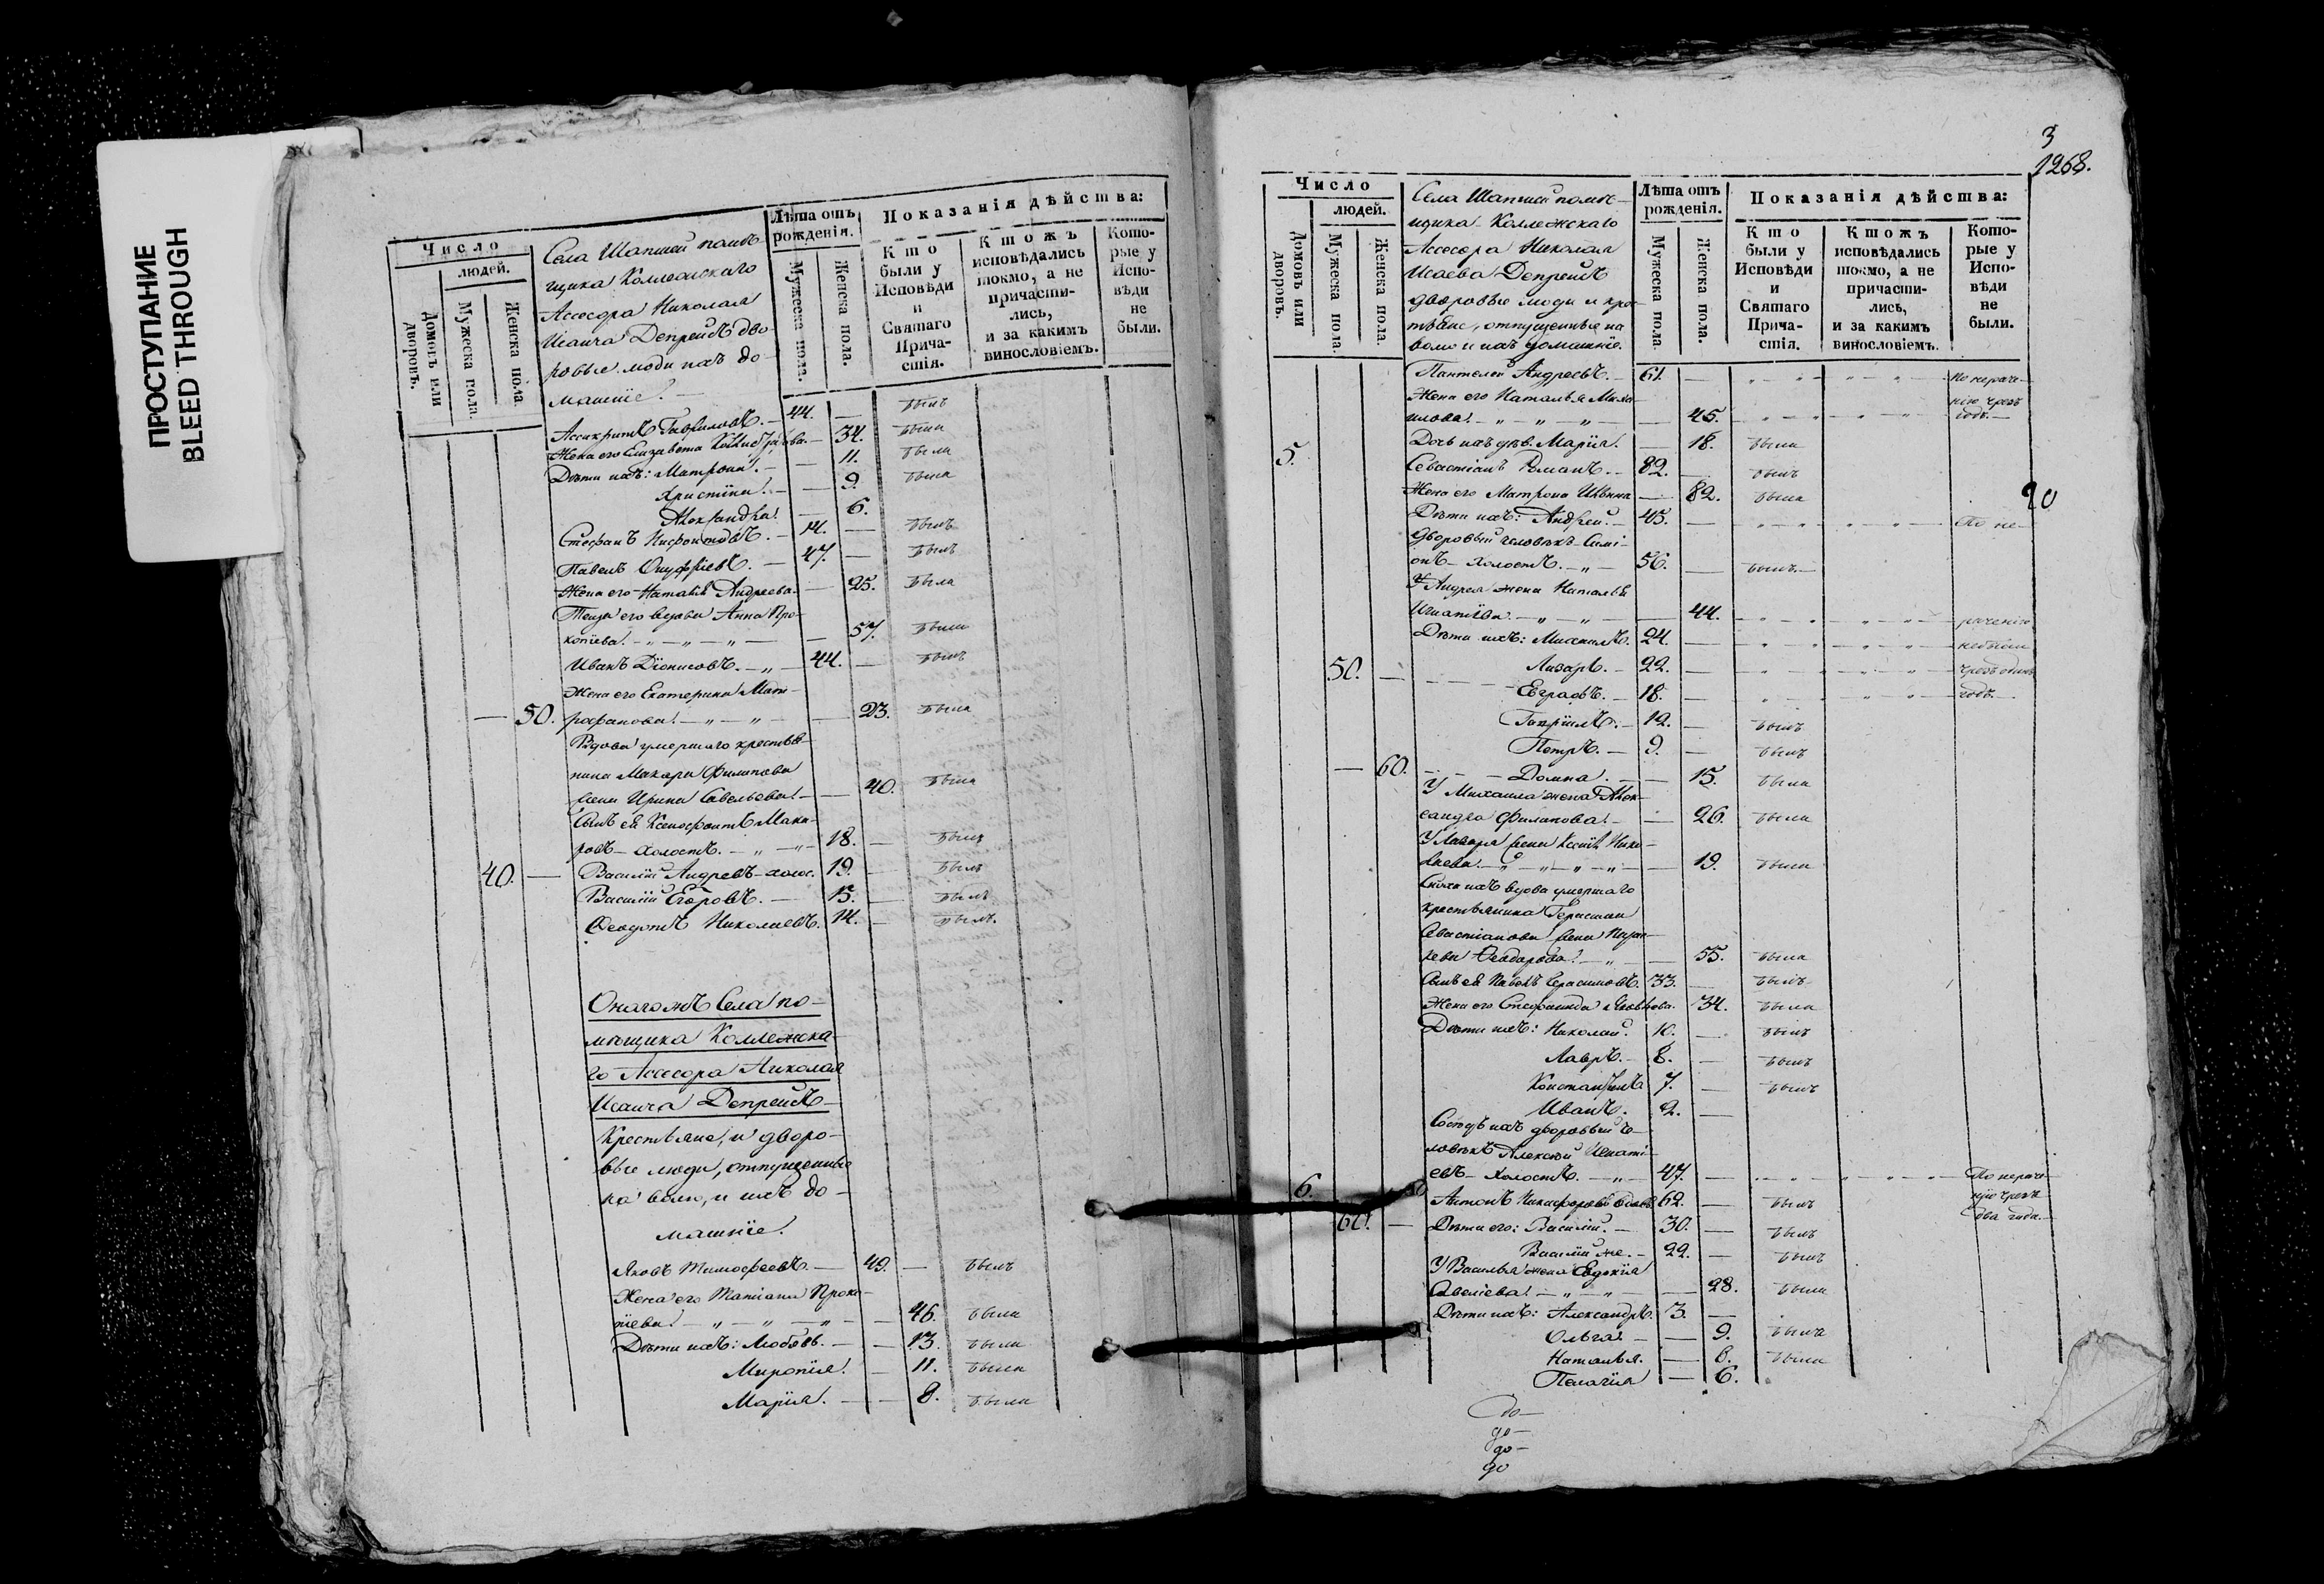 ПРОСТУПАНИЕ
BLEED THROUGH
Число
людей.
Домовъ или дворовъ.
Мужеска пола.
Женска пола.
Села Шапшей помѣ-
щика Коллежскаго
Ассесора Николая
Исаича Депрейсъ дво-
ровые люди ихъ до-
машніе.
Лѣта отъ рожденія.
Мужеска пола.
Женска пола.
Показанія дѣйства:
Кто были у Исповѣди и Святаго Причастія.
Ктожъ исповѣдались токмо, а не причастились, и за какимъ винословіемъ.
Которые у Исповѣди не были.
Гавриловъ. 44. — былъ
Жена его Елизавета 34. была
Дѣти ихъ: Матрона. — 11. была
Христина. — 9. была
Александра. — 6.
Стефанъ 14. — былъ
Павелъ Онуфріевъ. — 47. — былъ
Жена его Наталья Андреева. — 25. была
Теща его вдова Анна Про-
копіева. — „ — „ — 57. была
Иванъ Діонисовъ. — „ — 44. — былъ
Жена его Екатерина
— 50. — „ — „ — 23. была
Вдова умершаго крестья-
нина Макара Филипова
жена Ирина Савельева. — 40. была
Сынъ ея Ксенофонтъ Мака-
ровъ — холостъ. — „ — 18. — былъ
40. — Василій Андреевъ — холос. 19. — былъ
Василій Егоровъ. — 15. — былъ
Ѳеодотъ Николаевъ. 14. — былъ.
Онагожъ Села по-
мѣщика Коллежска-
го Ассесора Николая
Исаича Депрейсъ
Крестьяне, и дворо-
вые люди, отпущенные
на волю, и ихъ до-
машніе.
Яковъ Тимофеевъ. — 49. — былъ
Жена его Татіана Проко-
піева. — „ — „ — „ — 46. была
Дѣти ихъ: Любовь. — — 13. была
Миропія. — 11. была
Марія. — — 8. была
3
1268.
Число
людей.
Домовъ или дворовъ.
Мужеска пола.
Женска пола.
Села Шапшей помѣ-
щика Коллежскаго
Ассесора Николая
Исаева Депрейсъ
дворовые люди и крес-
тьяне, отпущенные на
волю и ихъ домашніе.
Лѣта отъ рожденія.
Мужеска пола.
Женска пола.
Показанія дѣйства:
Кто были у Исповѣди и Святаго Причастія.
Ктожъ исповѣдались токмо, а не причастились, и за какимъ винословіемъ.
Которые у Исповѣди не были.
Пантелей Андреевъ. — 61. — По нераче-
Жена его Наталья Миха- нію чрезъ
илова. — „ — „ — „ — 45. годъ.
Дочь ихъ дѣв. Марія. — 18. была
5. Севастіанъ Романъ. — 82. — былъ
Жена его Матрона — 82. была
20
Дѣти ихъ: Андрей. — 45. — По не-
Дворовый человѣкъ Симі-
онъ — холостъ. — „ — 56. — былъ.
У Андрея жена Наталья
Игнатіева. — „ — „ — 44. раченію
Дѣти ихъ: Михаилъ. 24.
50. — Лазарь. — 22. чрезъ одинъ
Евграфъ. — 18. годъ.
Гавріилъ. — 12. — былъ
Петръ. — 9. — былъ
— 60. — Домна. — — 15. была
У Михаила жена Алек-
сандра Филипова. — 26. была
У Лазаря жена Ксенія Нико-
лаева. — „ — „ — „ — 19. была
Сноха ихъ вдова умершаго
крестьянина Герасима
Севастіанова жена Парас-
кева Ѳеодорова. — „ — 55. была
Сынъ ея Павелъ Герасимовъ. 33. — былъ
Жена его Стефанида Яковлева. 34. была
Дѣти ихъ: Николай. 10. — былъ
Лавръ. 8. — былъ
Константинъ 7. — былъ
Иванъ. 2. —
Сосѣдъ ихъ дворовый че-
ловѣкъ Алексѣй Игнаті-
евъ — холостъ. — „ — 47. — По нераче-
6. Антонъ Никифоровъ вдовъ. 62. — былъ нію чрезъ
60. — Дѣти его: Василій. — 30. — былъ два года.
Василій же. — 22. — былъ
У Василья жена Евдокія
Савеліева. — „ — „ — 28. была
Дѣти ихъ: Александръ. 3. —
Ольга. — — 9. была
Наталья. — 8. была
Пелагія — 6.
до —
до —
до —
до